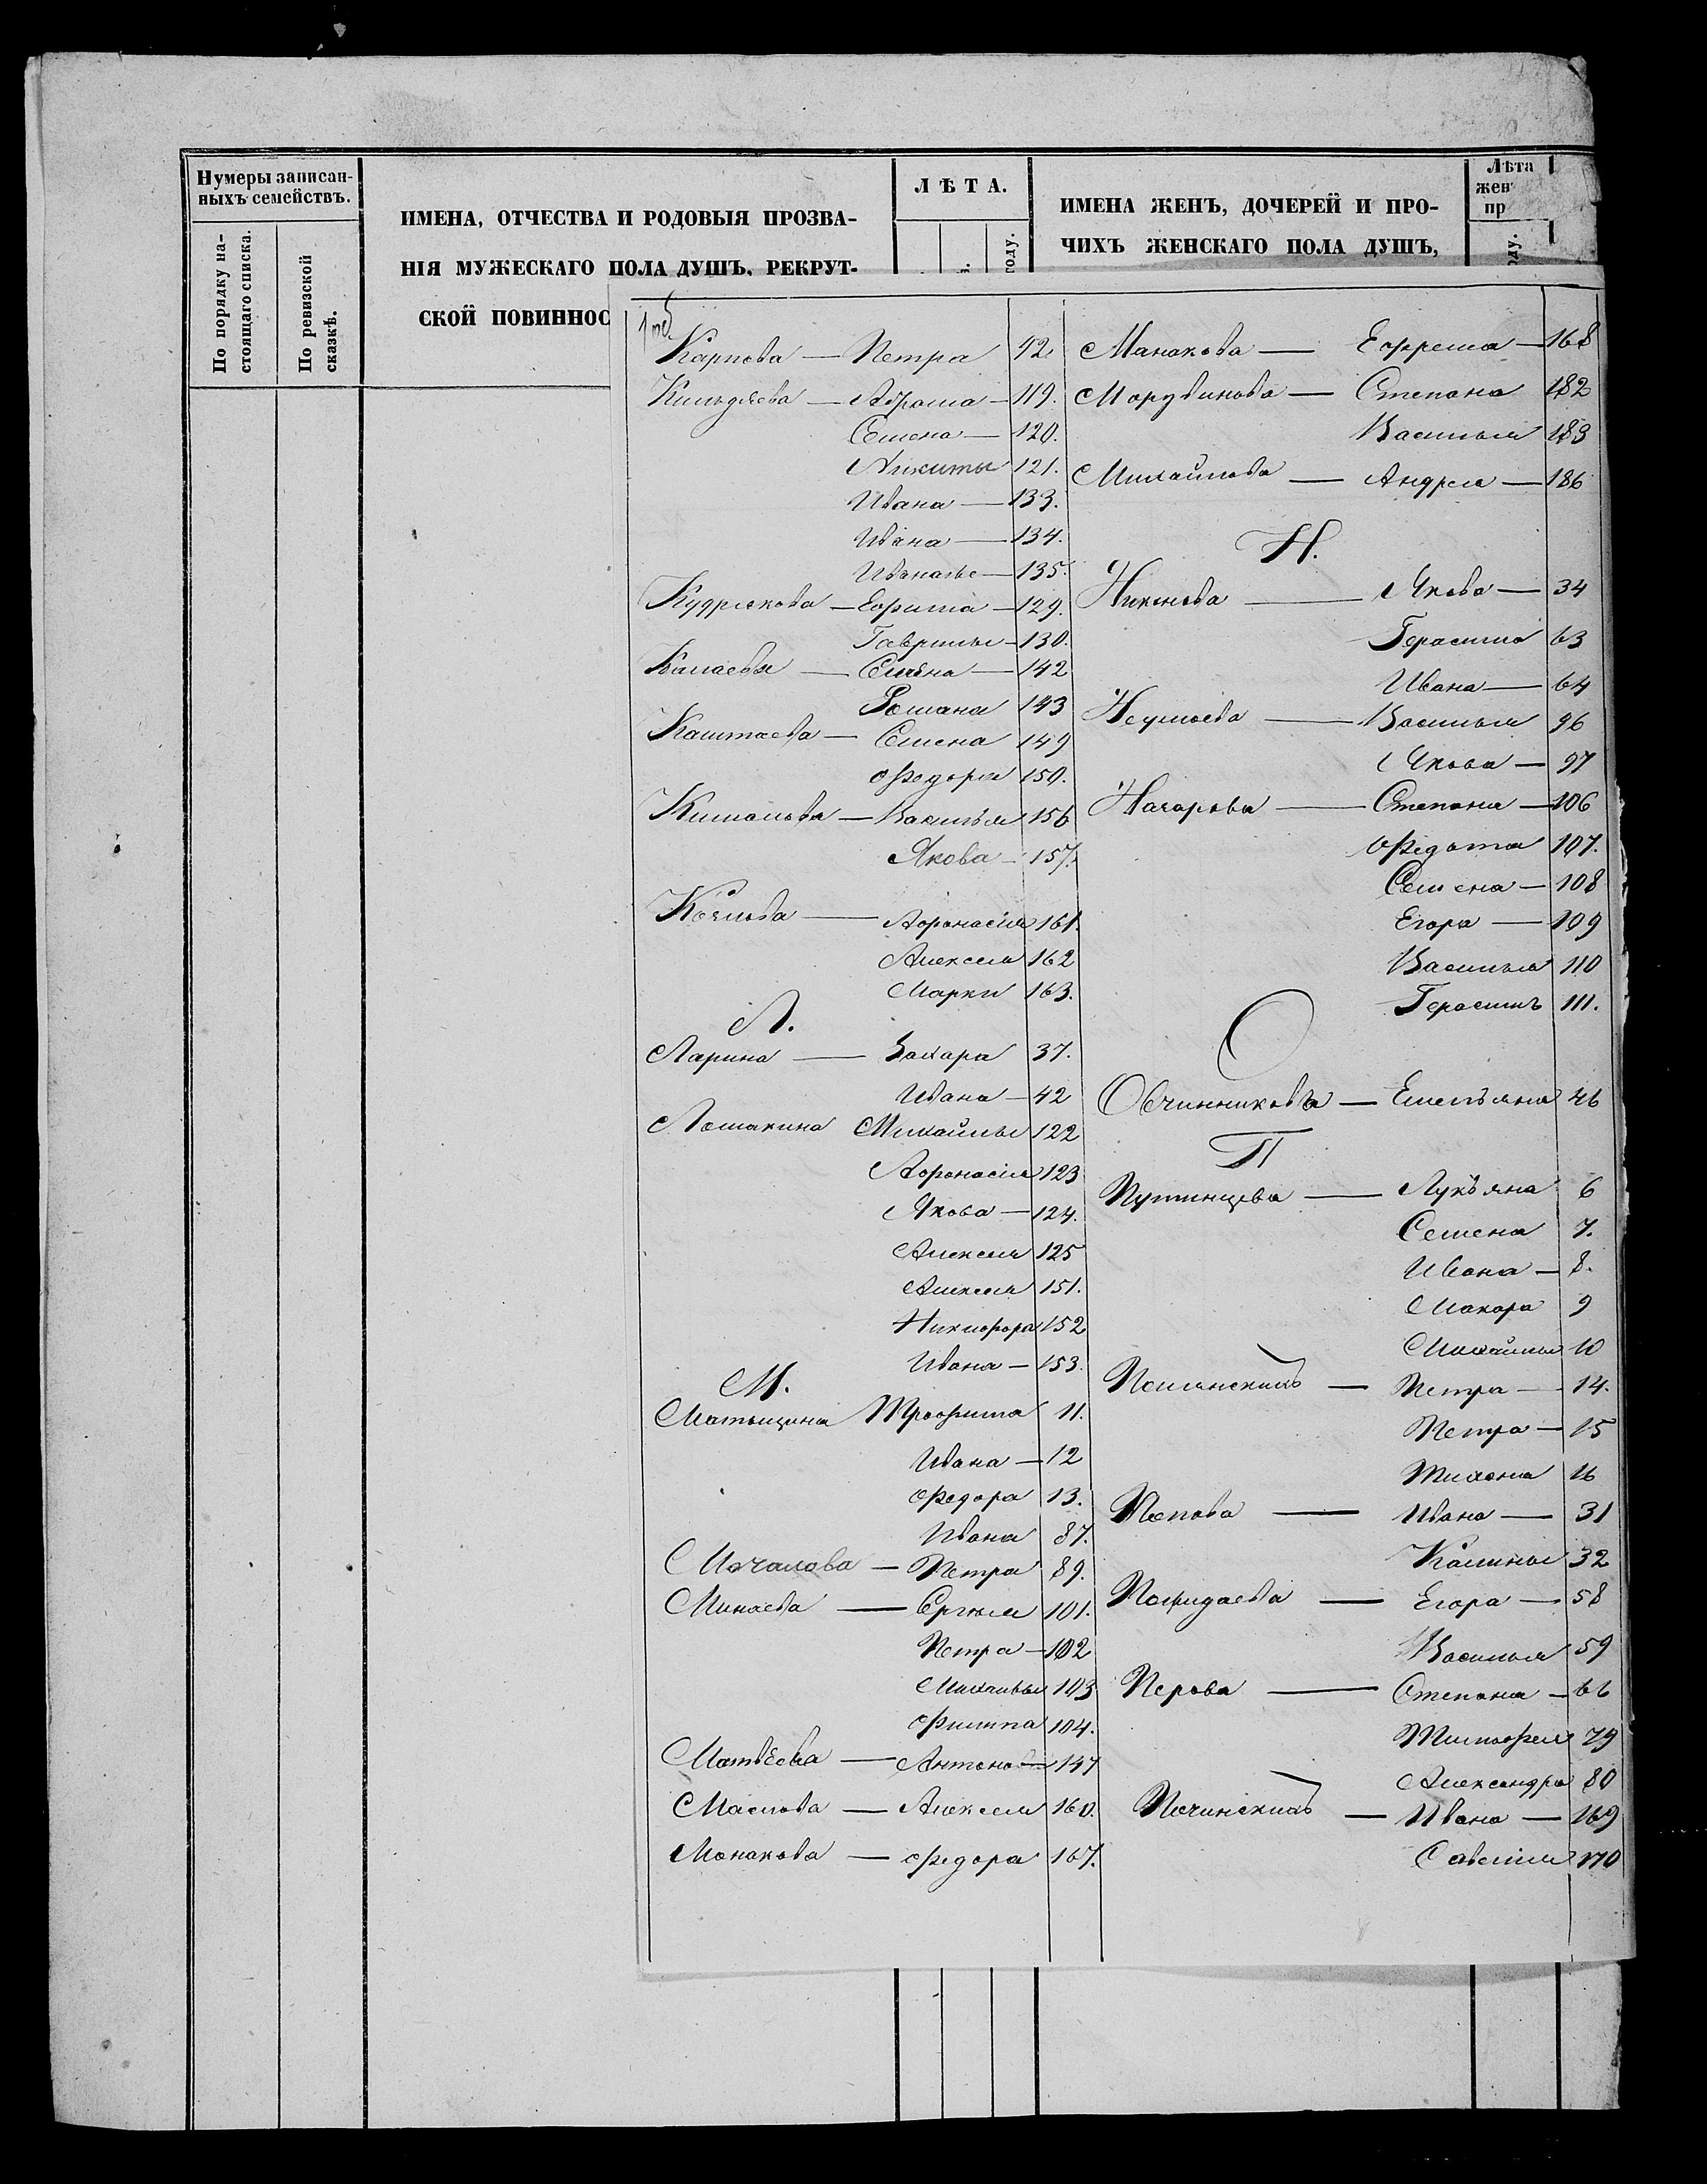 Нумеры записан-
ныхъ семействъ.
По порядку на-
стоящаго списка.
По ревизской
сказкѣ.
ИМЕНА, ОТЧЕСТВА И РОДОВЫЯ ПРОЗВА-
НІЯ МУЖЕСКАГО ПОЛА ДУШЪ, РЕКРУТ-
СКОЙ ПОВИННОС
ЛѢТА.
году.
ИМЕНА ЖЕНЪ, ДОЧЕРЕЙ И ПРО-
ЧИХЪ ЖЕНСКАГО ПОЛА ДУШЪ,
Лѣта
жен
пр
оду.
1 об
Карпова — Петра 92
Кильдяева — Абрама — 119.
Семена — 120.
Никиты 121.
Ивана — 133.
Ивана — 134.
135.
Кудрякова — Ефима — 129.
Гаврилы — 130.
Калаева — Семена — 142
Романа 143
Каштаева — Семена 149
Федора 150.
Василья 156
Якова — 157.
Афонасія 161.
Алексея 162
Марки 163.
Л.
Ларина — Захара 37.
Ивана — 42
Лошакина Михайлы 122
Афонасія 123
Якова — 124.
Алексея 125
Алексея 151.
Никифора 152
Ивана — 153.
М.
Матыцина Трофима 11.
Ивана — 12
Федора 13.
Ивана 87.
Мочалова — Петра 89.
Минаева — Сергея 101.
Петра — 102
Михайлы 103
Филипа 104.
Матвѣева — Антона — 147
Маслова — Алексея 160.
Монакова — Федора 167.
Манакова — Ефрема — 168
Морузинова — Степана 182
Василья 183
Михайлова — Андрея — 186
Н.
Никонова — Якова — 34
Герасима 63
Ивана — 64
Неумоева — Василья 96
Якова — 97
Начарова — Степана — 106
Федота 107.
Семена — 108
Егора — 109
Василья 110
Герасима 111.
О
Овчинникова — Емельяна 46
П
Путинцева — Лукьяна 6
Семена 7.
Ивана — 8.
Макара 9
Михайлы 10
Полянскихъ — Петра — 14.
Петра — 15
Тихона 16
Попова — Ивана — 31
Калины 32
Пожидаева — Егора — 58
Василья 59
Перова — Степана — 66
Тимофея 79
Александра 80
Починскихъ — Ивана — 169
Савелия 170